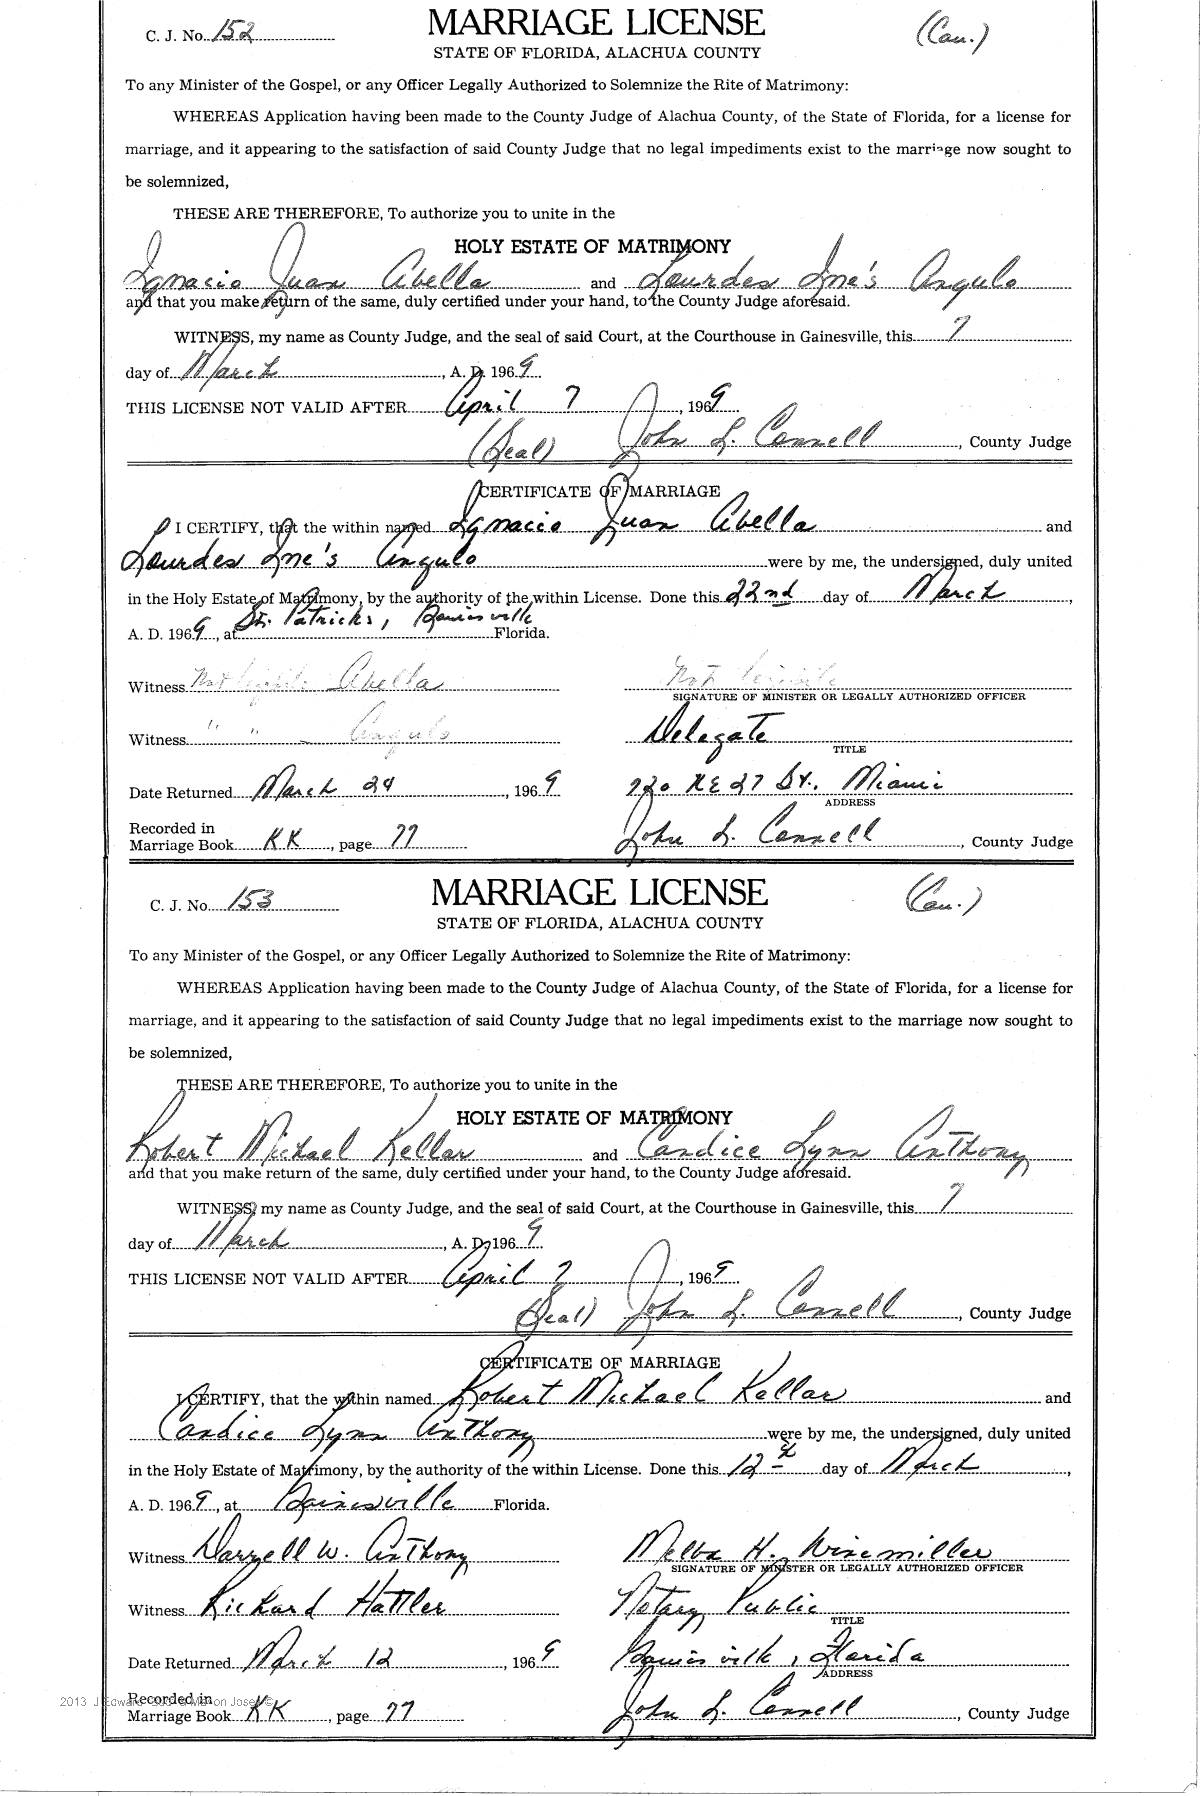 C. J. No. 152 MARRIAGE LICENSE (Cau.)
STATE OF FLORIDA, ALACHUA COUNTY
To any Minister of the Gospel, or any Officer Legally Authorized to Solemnize the Rite of Matrimony:
WHEREAS Application having been made to the County Judge of Alachua County, of the State of Florida, for a license for
marriage, and it appearing to the satisfaction of said County Judge that no legal impediments exist to the marriage now sought to
be solemnized,
THESE ARE THEREFORE, To authorize you to unite in the
HOLY ESTATE OF MATRIMONY
Ignacio Juan Abella and Lourdes Ine's Angulo
and that you make return of the same, duly certified under your hand, to the County Judge aforesaid.
WITNESS, my name as County Judge, and the seal of said Court, at the Courthouse in Gainesville, this 7
day of March, A. D. 1969
THIS LICENSE NOT VALID AFTER April 7, 1969
(Seal) John L. Connell, County Judge
CERTIFICATE OF MARRIAGE
I CERTIFY, that the within named Ignacio Juan Abella and
Lourdes Ine's Angulo were by me, the undersigned, duly united
in the Holy Estate of Matrimony, by the authority of the within License. Done this 22nd day of March,
A. D. 1969, at St. Patricks, Gainesville Florida.
Witness Not legible Abella Not legible
SIGNATURE OF MINISTER OR LEGALLY AUTHORIZED OFFICER
Witness " " Angulo Delegate
TITLE
Date Returned March 24, 1969 720 NE 27 St., Miami
ADDRESS
Recorded in
Marriage Book KK, page 77 John L. Connell, County Judge
C. J. No. 153 MARRIAGE LICENSE (Cau.)
STATE OF FLORIDA, ALACHUA COUNTY
To any Minister of the Gospel, or any Officer Legally Authorized to Solemnize the Rite of Matrimony:
WHEREAS Application having been made to the County Judge of Alachua County, of the State of Florida, for a license for
marriage, and it appearing to the satisfaction of said County Judge that no legal impediments exist to the marriage now sought to
be solemnized,
THESE ARE THEREFORE, To authorize you to unite in the
HOLY ESTATE OF MATRIMONY
Robert Michael Kellar and Candice Lynn Anthony
and that you make return of the same, duly certified under your hand, to the County Judge aforesaid.
WITNESS, my name as County Judge, and the seal of said Court, at the Courthouse in Gainesville, this 7
day of March, A. D. 1969
THIS LICENSE NOT VALID AFTER April 7, 1969
(Seal) John L. Connell, County Judge
CERTIFICATE OF MARRIAGE
I CERTIFY, that the within named Robert Michael Kellar and
Candice Lynn Anthony were by me, the undersigned, duly united
in the Holy Estate of Matrimony, by the authority of the within License. Done this 12th day of March,
A. D. 1969, at Gainesville Florida.
Witness Darrell W. Anthony Melba H. Winemiller
SIGNATURE OF MINISTER OR LEGALLY AUTHORIZED OFFICER
Witness Richard Hattler Notary Public
TITLE
Date Returned March 12, 1969 Gainesville, Florida
ADDRESS
Recorded in
Marriage Book KK, page 77 John L. Connell, County Judge